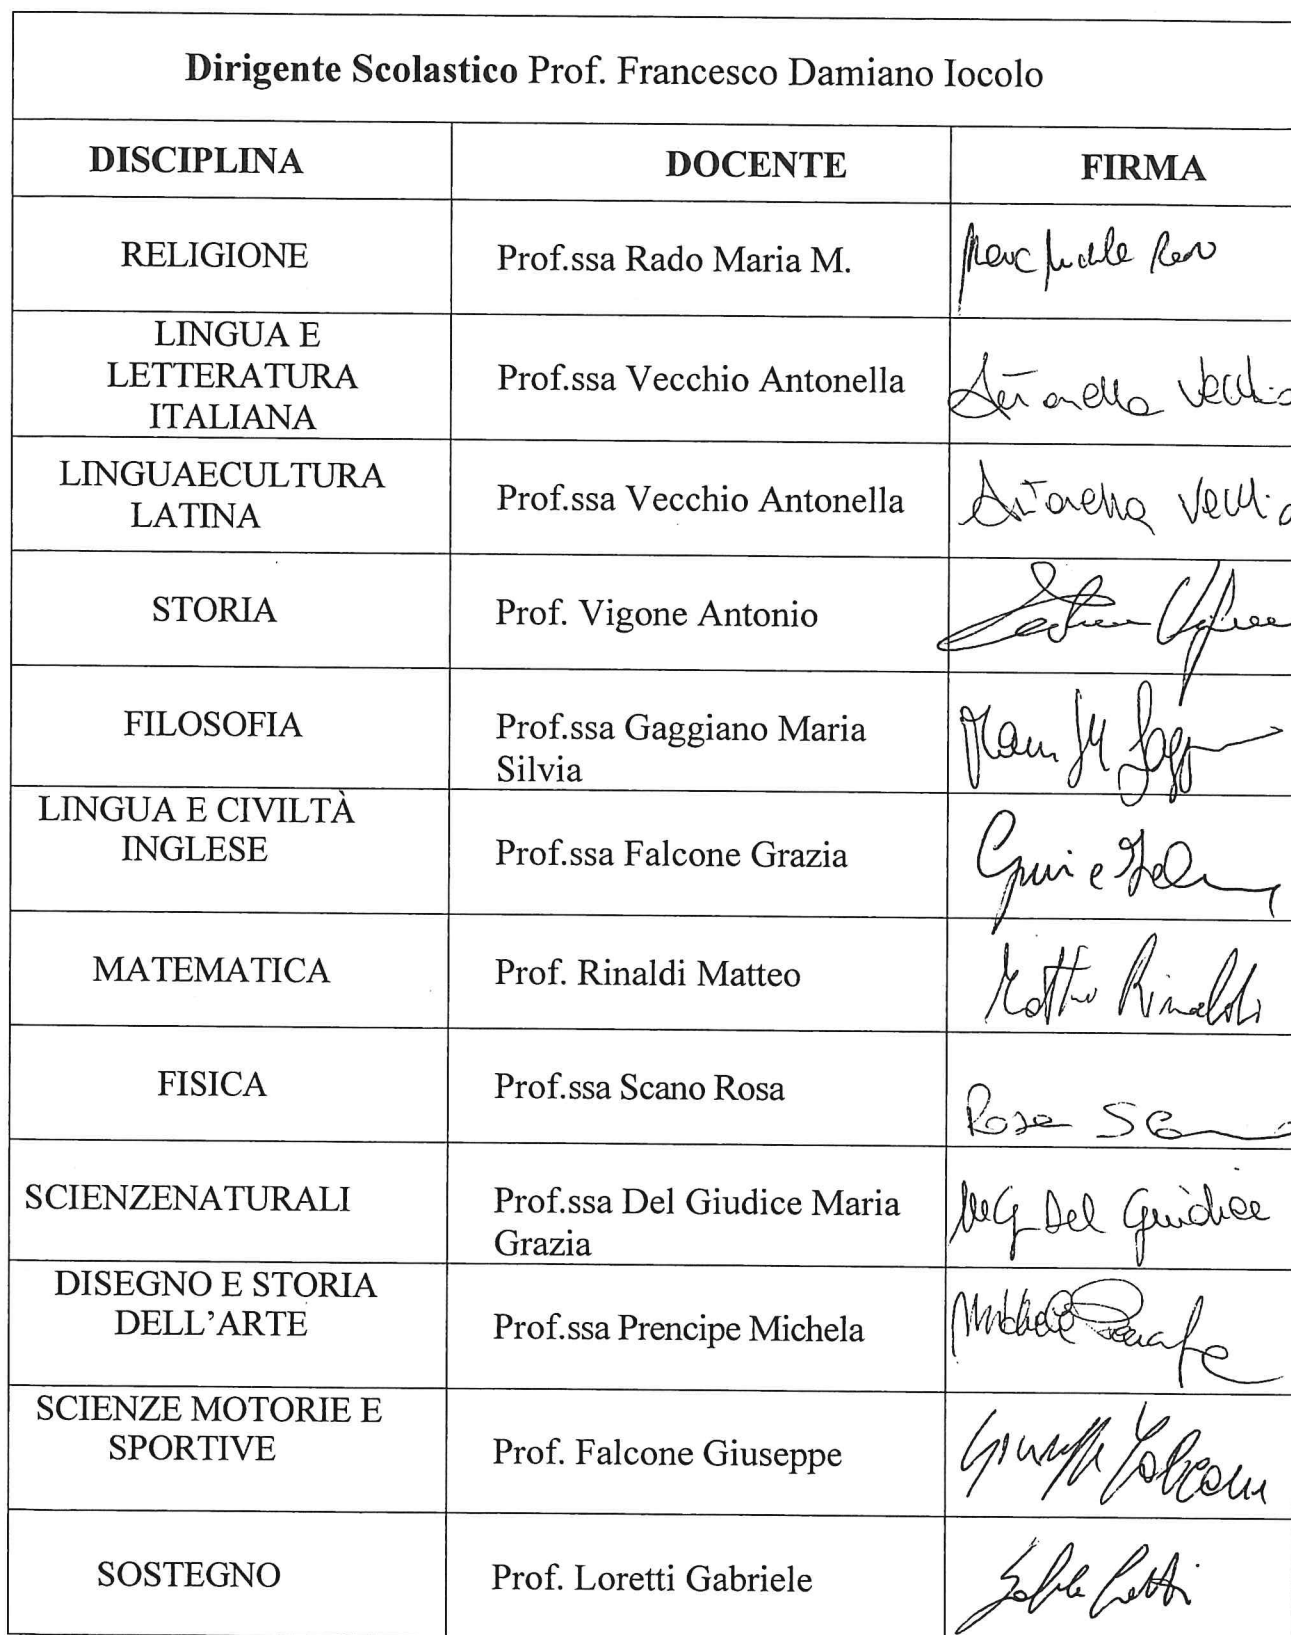 Dirigente Scolastico Prof. Francesco Damiano Iocolo
DISCIPLINA DOCENTE FIRMA
RELIGIONE Prof.ssa Rado Maria M.
LINGUA E
LETTERATURA
ITALIANA
Prof.ssa Vecchio Antonella Antonella Vecchio
LINGUAECULTURA
LATINA
Prof.ssa Vecchio Antonella Antonella Vecchio
STORIA Prof. Vigone Antonio
FILOSOFIA Prof.ssa Gaggiano Maria
Silvia
LINGUA E CIVILTÀ
INGLESE
Prof.ssa Falcone Grazia
MATEMATICA Prof. Rinaldi Matteo Matteo Rinaldi
FISICA Prof.ssa Scano Rosa Rosa Scano
SCIENZENATURALI Prof.ssa Del Giudice Maria
Grazia
MG Del Giudice
DISEGNO E STORIA
DELL’ARTE
Prof.ssa Prencipe Michela
SCIENZE MOTORIE E
SPORTIVE
Prof. Falcone Giuseppe Giuseppe Falcone
SOSTEGNO Prof. Loretti Gabriele